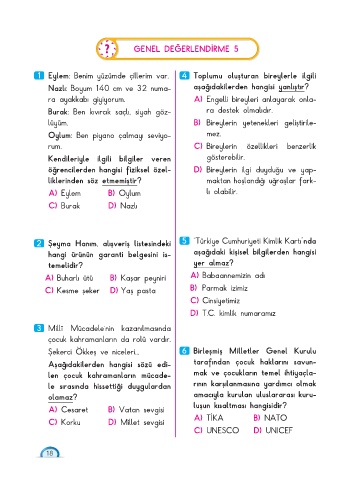 GENEL DEĞERLENDİRME 5
1 Eylem: Benim yüzümde çillerim var.
Nazlı: Boyum 140 cm ve 32 numa-
ra ayakkabı giyiyorum.
Burak: Ben kıvırcık saçlı, siyah göz-
lüyüm.
Oylum: Ben piyano çalmayı seviyo-
rum.
Kendileriyle ilgili bilgiler veren
öğrencilerden hangisi fiziksel özel-
liklerinden söz etmemiştir?
A) Eylem B) Oylum
C) Burak D) Nazlı
2 Şeyma Hanım, alışveriş listesindeki
hangi ürünün garanti belgesini is-
temelidir?
A) Buharlı ütü B) Kaşar peyniri
C) Kesme şeker D) Yaş pasta
3 Millî Mücadele'nin kazanılmasında
çocuk kahramanların da rolü vardır.
Şekerci Ökkeş ve niceleri...
Aşağıdakilerden hangisi sözü edi-
len çocuk kahramanların mücade-
le sırasında hissettiği duygulardan
olamaz?
A) Cesaret B) Vatan sevgisi
C) Korku D) Millet sevgisi
4 Toplumu oluşturan bireylerle ilgili
aşağıdakilerden hangisi yanlıştır?
A) Engelli bireyleri anlayarak onla-
ra destek olmalıdır.
B) Bireylerin yetenekleri geliştirile-
mez.
C) Bireylerin özellikleri benzerlik
gösterebilir.
D) Bireylerin ilgi duyduğu ve yap-
maktan hoşlandığı uğraşlar fark-
lı olabilir.
5 'Türkiye Cumhuriyeti Kimlik Kartı'nda
aşağıdaki kişisel bilgilerden hangisi
yer almaz?
A) Babaannemizin adı
B) Parmak izimiz
C) Cinsiyetimiz
D) T.C. kimlik numaramız
6 Birleşmiş Milletler Genel Kurulu
tarafından çocuk haklarını savun-
mak ve çocukların temel ihtiyaçla-
rının karşılanmasına yardımcı olmak
amacıyla kurulan uluslararası kuru-
luşun kısaltması hangisidir?
A) TİKA B) NATO
C) UNESCO D) UNICEF
18